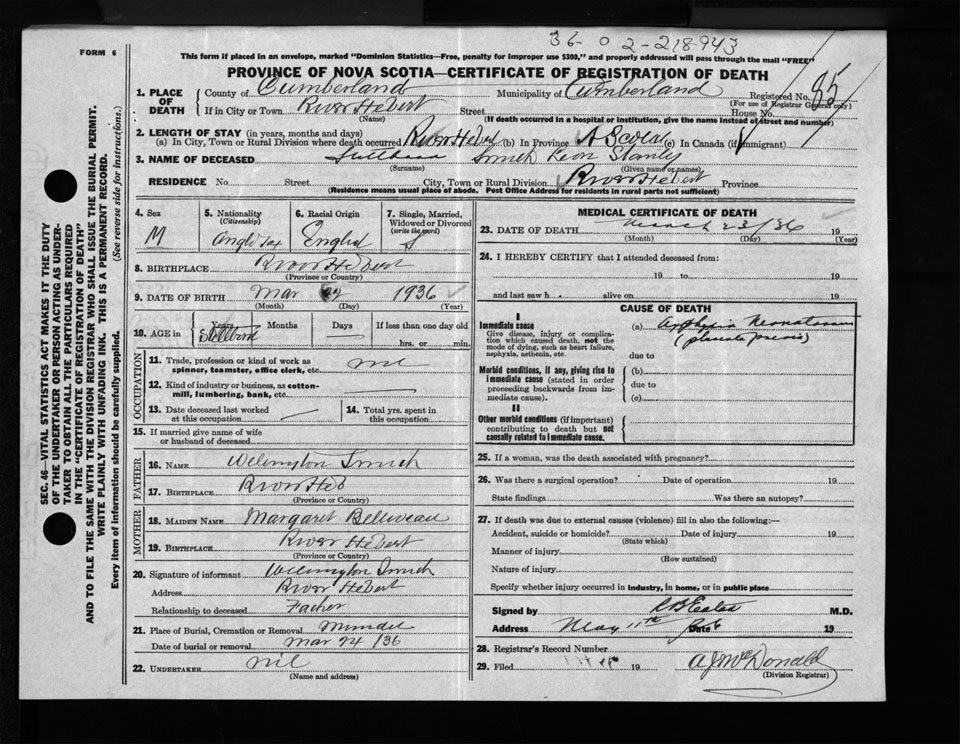 36-02-218943
FORM 6
This form if placed in an envelope, marked "Dominion Statistics—Free, penalty for improper use $300," and properly addressed will pass through the mail "FREE"
PROVINCE OF NOVA SCOTIA—CERTIFICATE OF REGISTRATION OF DEATH
85
1. PLACE OF DEATH County of Cumberland Municipality of Cumberland Registered No.
(For use of Registrar General only)
If in City or Town River Hebert Street House No.
(Name) (If death occurred in a hospital or institution, give the name instead of street and number)
2. LENGTH OF STAY (in years, months and days)
(a) In City, Town or Rural Division where death occurred River Hebert (b) In Province N Scotia (c) In Canada (if immigrant)
3. NAME OF DECEASED Smith Stanley
(Surname) (Given name or names)
RESIDENCE No. Street City, Town or Rural Division River Hebert Province
(Residence means usual place of abode. Post Office Address for residents in rural parts not sufficient)
4. Sex M
5. Nationality (Citizenship) Anglo Sax
6. Racial Origin English
7. Single, Married, Widowed or Divorced (write the word) S
8. BIRTHPLACE River Hebert
(Province or Country)
9. DATE OF BIRTH Mar 22 1936
(Month) (Day) (Year)
10. AGE in Years Months Days If less than one day old
Stillborn hrs. or min.
OCCUPATION
11. Trade, profession or kind of work as spinner, teamster, office clerk, etc. nil
12. Kind of industry or business, as cotton-mill, lumbering, bank, etc.
13. Date deceased last worked at this occupation
14. Total yrs. spent in this occupation
15. If married give name of wife or husband of deceased
FATHER
16. NAME Welington Smith
17. BIRTHPLACE River Heb
(Province or Country)
MOTHER
18. MAIDEN NAME Margaret Belliveau
19. BIRTHPLACE River Hebert
(Province or Country)
20. Signature of informant Welington Smith
Address River Hebert
Relationship to deceased Father
21. Place of Burial, Cremation or Removal
Date of burial or removal Mar 24/36
22. UNDERTAKER nil
(Name and address)
MEDICAL CERTIFICATE OF DEATH
23. DATE OF DEATH March 23/36 19
(Month) (Day) (Year)
24. I HEREBY CERTIFY that I attended deceased from:
19 to 19
and last saw h alive on 19
CAUSE OF DEATH
I
Immediate cause
Give disease, injury or complication which caused death, not the mode of dying, such as heart failure, asphyxia, asthenia, etc.
(a) Asphyxia Neonatorum
(placenta previa)
due to
Morbid conditions, if any, giving rise to immediate cause (stated in order proceeding backwards from immediate cause).
(b)
due to
(c)
II
Other morbid conditions (if important) contributing to death but not causally related to immediate cause.
25. If a woman, was the death associated with pregnancy?
26. Was there a surgical operation? Date of operation 19
State findings Was there an autopsy?
27. If death was due to external causes (violence) fill in also the following:—
Accident, suicide or homicide? Date of injury 19
(State which)
Manner of injury
(How sustained)
Nature of injury
Specify whether injury occurred in industry, in home, or in public place
Signed by M.D.
Address May 11th Date 19
28. Registrar's Record Number
29. Filed 19 A J McDonald
(Division Registrar)
SEC. 46—VITAL STATISTICS ACT MAKES IT THE DUTY
OF THE UNDERTAKER OR PERSON ACTING AS UNDER-
TAKER TO OBTAIN ALL THE PARTICULARS REQUIRED
IN THE "CERTIFICATE OF REGISTRATION OF DEATH"
AND TO FILE THE SAME WITH THE DIVISION REGISTRAR WHO SHALL ISSUE THE BURIAL PERMIT.
WRITE PLAINLY WITH UNFADING INK. THIS IS A PERMANENT RECORD.
Every item of information should be carefully supplied. (See reverse side for instructions.)